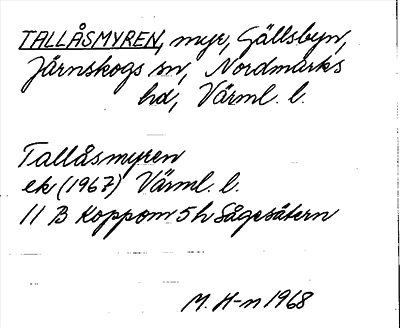 TALLÅSMYREN, myr, Gällsbyn,
Järnskogs sn, Nordmarks
hd, Värml. l.
Tallåsmyren
ek (1967) Värml. l.
11 B Koppom 5 h Sågesätern
M. H-n 1968